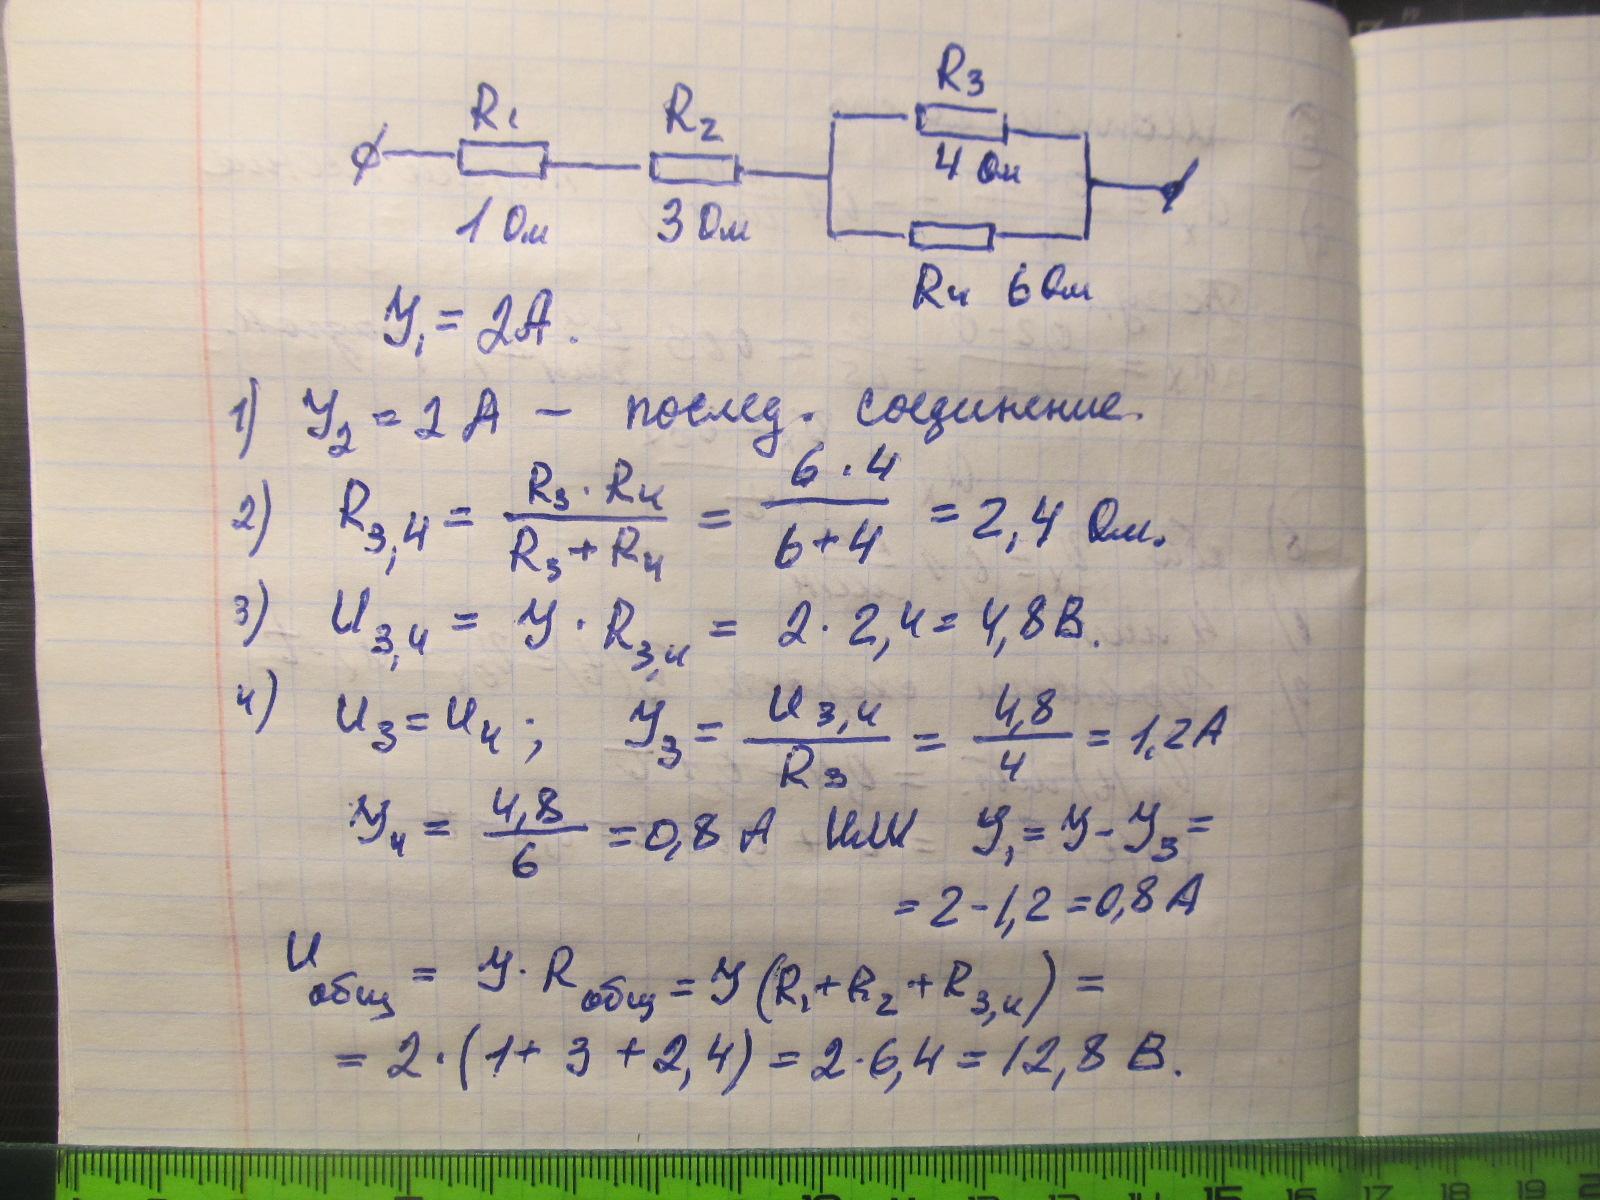 R1 R2 R3
1 Ом 3 Ом 4 Ом
R4 6 Ом
У1 = 2А.
1) У2 = 2 А – послед. соединение.
2) R3,4 = R3 · R4 / R3 + R4 = 6 · 4 / 6 + 4 = 2,4 Ом.
3) U3,4 = У · R3,4 = 2 · 2,4 = 4,8 В.
4) U3 = U4 ; У3 = U3,4 / R3 = 4,8 / 4 = 1,2 А
У4 = 4,8 / 6 = 0,8 А или У1 = У – У3 =
= 2 – 1,2 = 0,8 А
Uобщ = У · Rобщ = У (R1 + R2 + R3,4) =
= 2 · (1 + 3 + 2,4) = 2 · 6,4 = 12,8 В.